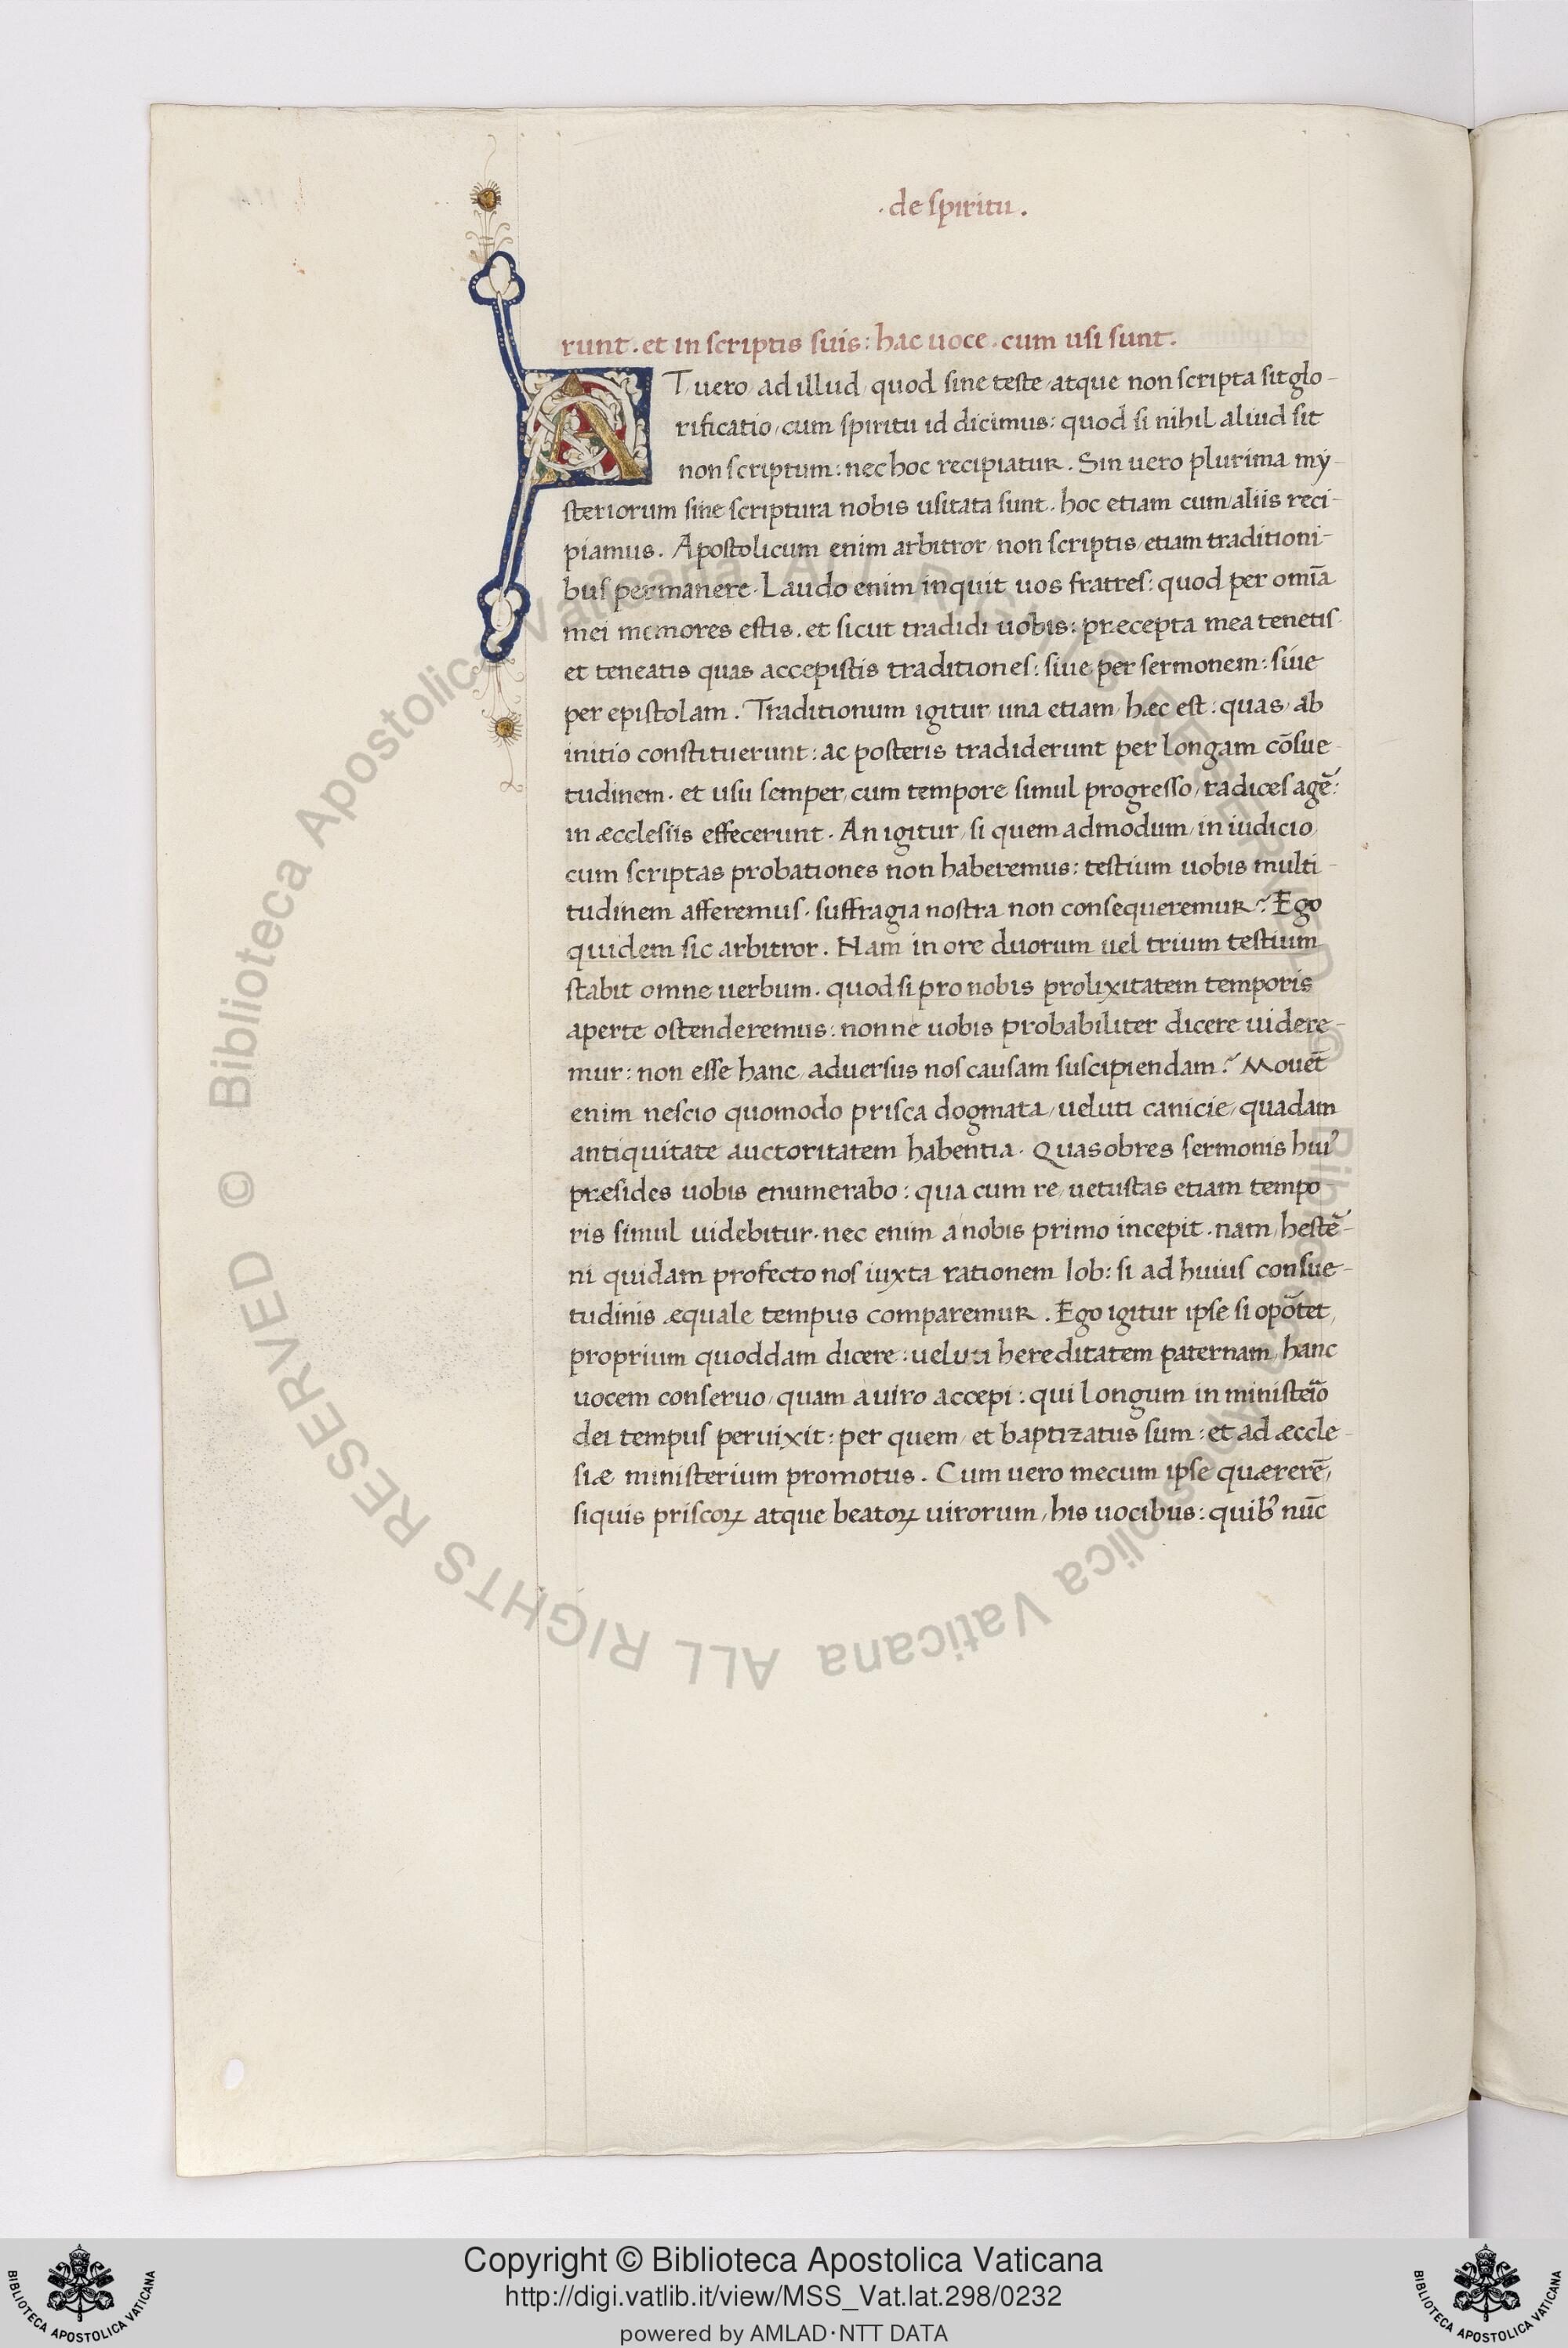 · de spiritu .
runt . et in scriptis suis : hac uoce . cum usi sunt .
AT uero ad illud quod sine teste atque non scripta sit glo-
rificatio, cum spiritu id dicimus: quod si nihil aliud sit
non scriptum: nec hoc recipiatur. Sin uero plurima my-
steriorum sine scriptura nobis usitata sunt. hoc etiam cum aliis reci-
piamus. Apostolicum enim arbitror non scriptis etiam traditioni-
bus permanere. Laudo enim inquit uos fratres: quod per omĩa
mei memores estis. et sicut tradidi uobis: præcepta mea tenetis.
et teneatis quas accepistis traditiones: siue per sermonem: siue
per epistolam. Traditionum igitur una etiam hæc est: quas ab
initio constituerunt: ac posteris tradiderunt per longam cõsue-
tudinem. et usu semper, cum tempore simul progresso, radices agẽ:
in æcclesiis effecerunt. An igitur, si quem admodum in iudicio,
cum scriptas probationes non haberemus: testium uobis multi-
tudinem afferemus. suffragia nostra non consequeremur? Ego
quidem sic arbitror. Nam in ore duorum uel trium testium
stabit omne uerbum. quod si pro nobis prolixitatem temporis
aperte ostenderemus: nonne uobis probabiliter dicere uidere-
mur: non esse hanc, aduersus nos causam suscipiendam? Mouẽt
enim nescio quomodo prisca dogmata, ueluti canicie, quadam
antiquitate auctoritatem habentia. Quas obres sermonis huiꝰ
præsides uobis enumerabo: qua cum re, uetustas etiam tempo-
ris simul uidebitur. nec enim a nobis primo incepit. nam, hestẽ-
ni quidam profecto nos iuxta rationem Iob: si ad huius consue-
tudinis æquale tempus comparemur. Ego igitur ipse si opõtet,
proprium quoddam dicere: ueluti hereditatem paternam, hanc
uocem conseruo, quam a uiro accepi: qui longum in ministẽio
dei tempus peruixit: per quem, et baptizatus sum: et ad æccle-
siæ ministerium promotus. Cum uero mecum ipse quærerẽ,
siquis priscoꝝ atque beatoꝝ uirorum, his uocibus: quibꝰ nũc
© Biblioteca Apostolica Vaticana ALL RIGHTS RESERVED
© Biblioteca Apostolica Vaticana ALL RIGHTS RESERVED
Copyright © Biblioteca Apostolica Vaticana
http://digi.vatlib.it/view/MSS_Vat.lat.298/0232
powered by AMLAD·NTT DATA
BIBLIOTECA APOSTOLICA VATICANA
BIBLIOTECA APOSTOLICA VATICANA